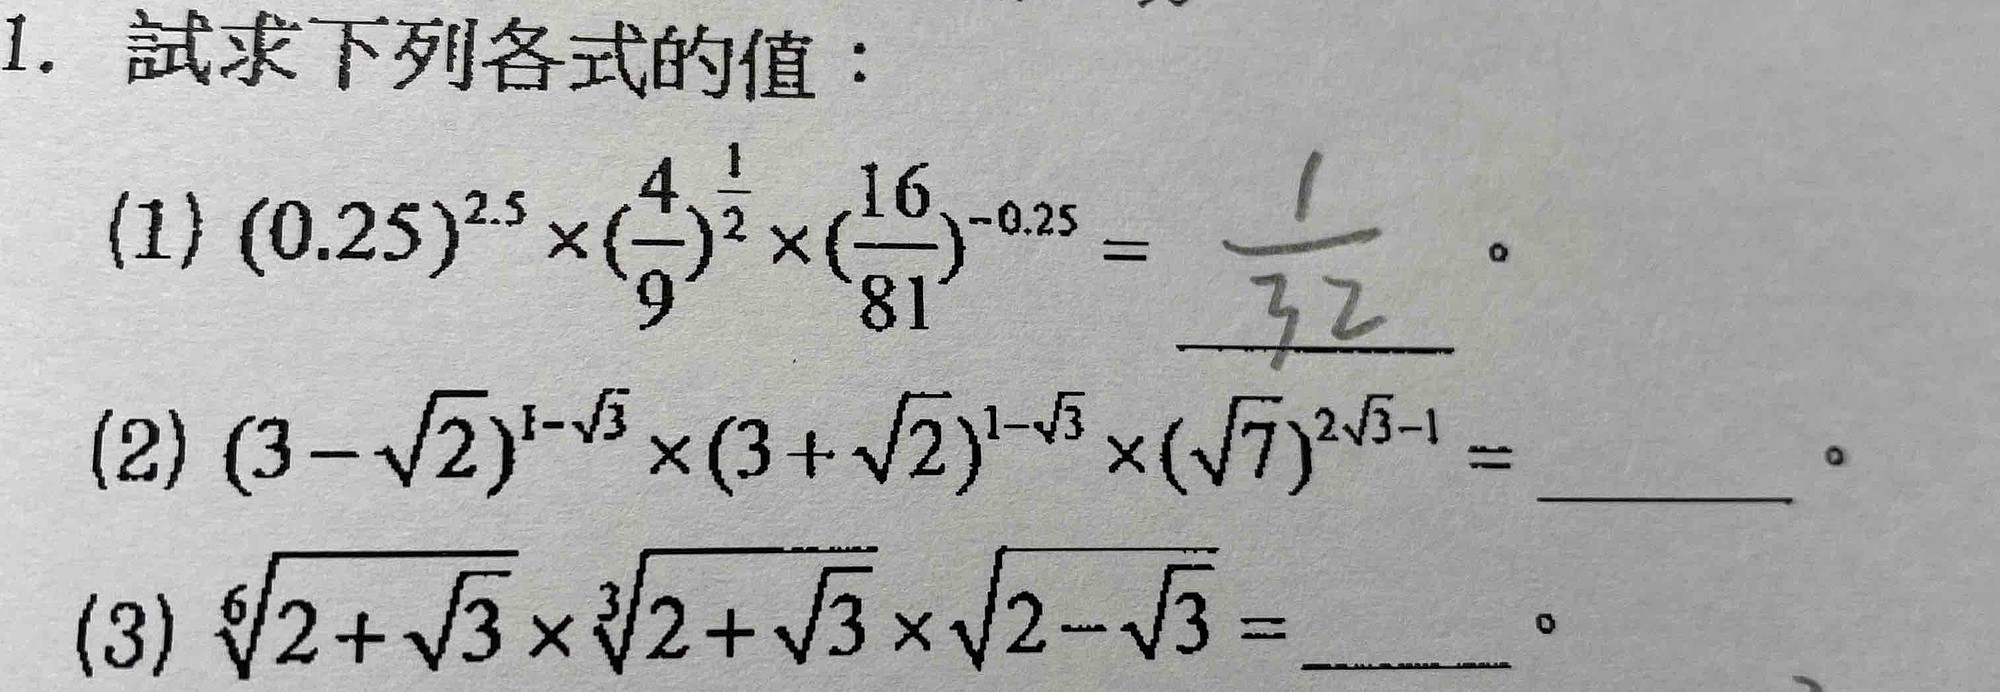 1. 試求下列各式的值：
(1) (0.25)^{2.5} × (\frac{4}{9})^{\frac{1}{2}} × (\frac{16}{81})^{-0.25} = \frac{1}{32} 。
(2) (3-√2)^{1-√3} × (3+√2)^{1-√3} × (√7)^{2√3-1} = ______ 。
(3) \sqrt[6]{2+√3} × \sqrt[3]{2+√3} × \sqrt{2-√3} = ______ 。